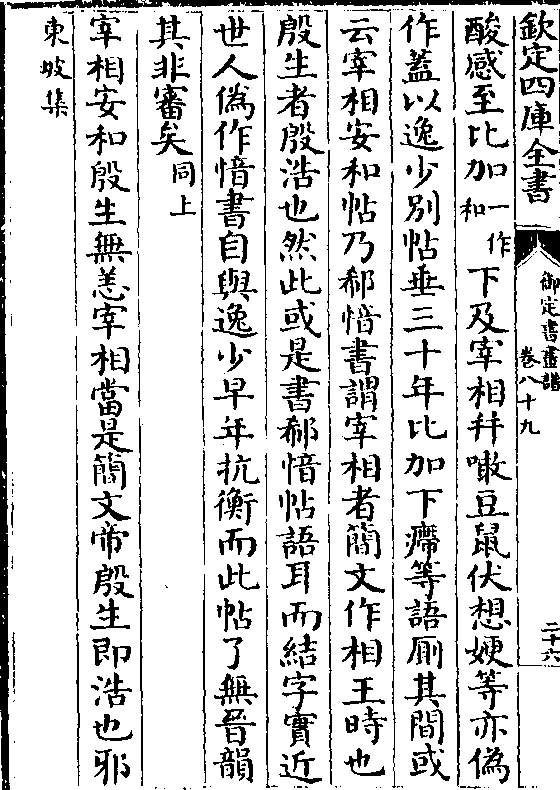 欽定四庫全書
御定書畫譜
卷八十九
二十六
酸感至比加一作和下及宰相幷噉豆鼠伏想㛐等亦偽
作蓋以逸少別帖垂三十年比加下㿃等語厠其間或
云宰相安和帖乃郗愔書謂宰相者簡文作相王時也
殷生者殷浩也然此或是書郗愔帖語耳而結字實近
世人偽作愔書自與逸少早年抗衡而此帖了無晉韻
其非審矣同上
宰相安和殷生無恙宰相當是簡文帝殷生即浩也邪
東坡集